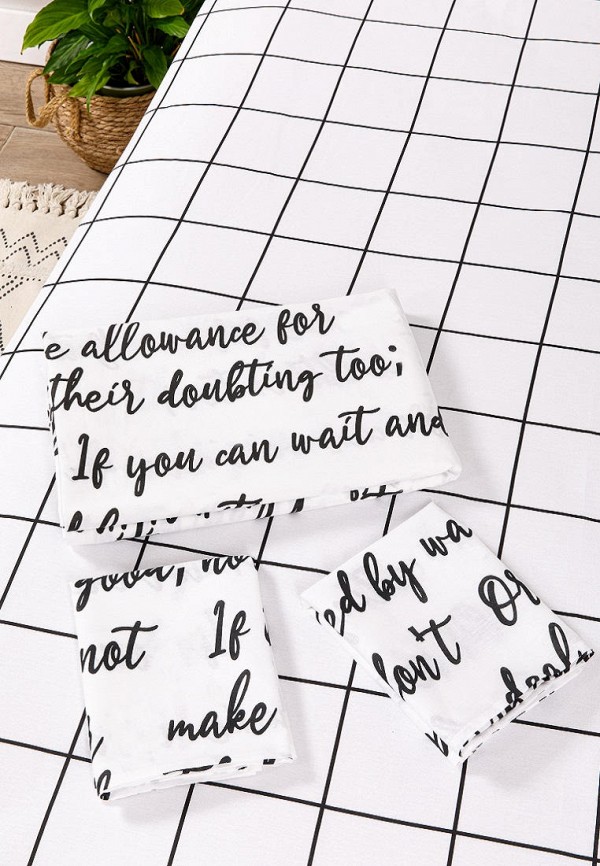 e allowance for
their doubting too;
If you can wait and
good, no
not If
make
ed by wa
don't Or